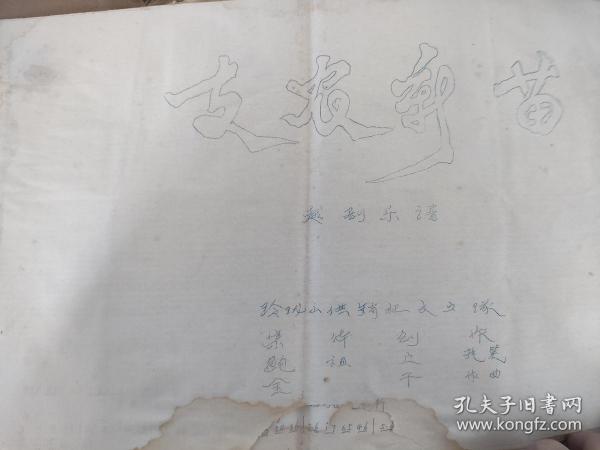 支农新苗
越剧乐谱
玲珑山供销社文工队
梁 炜 创 作
鲍 祖 立 执笔
金 千 作曲
孔夫子旧书网
www.kongfz.com